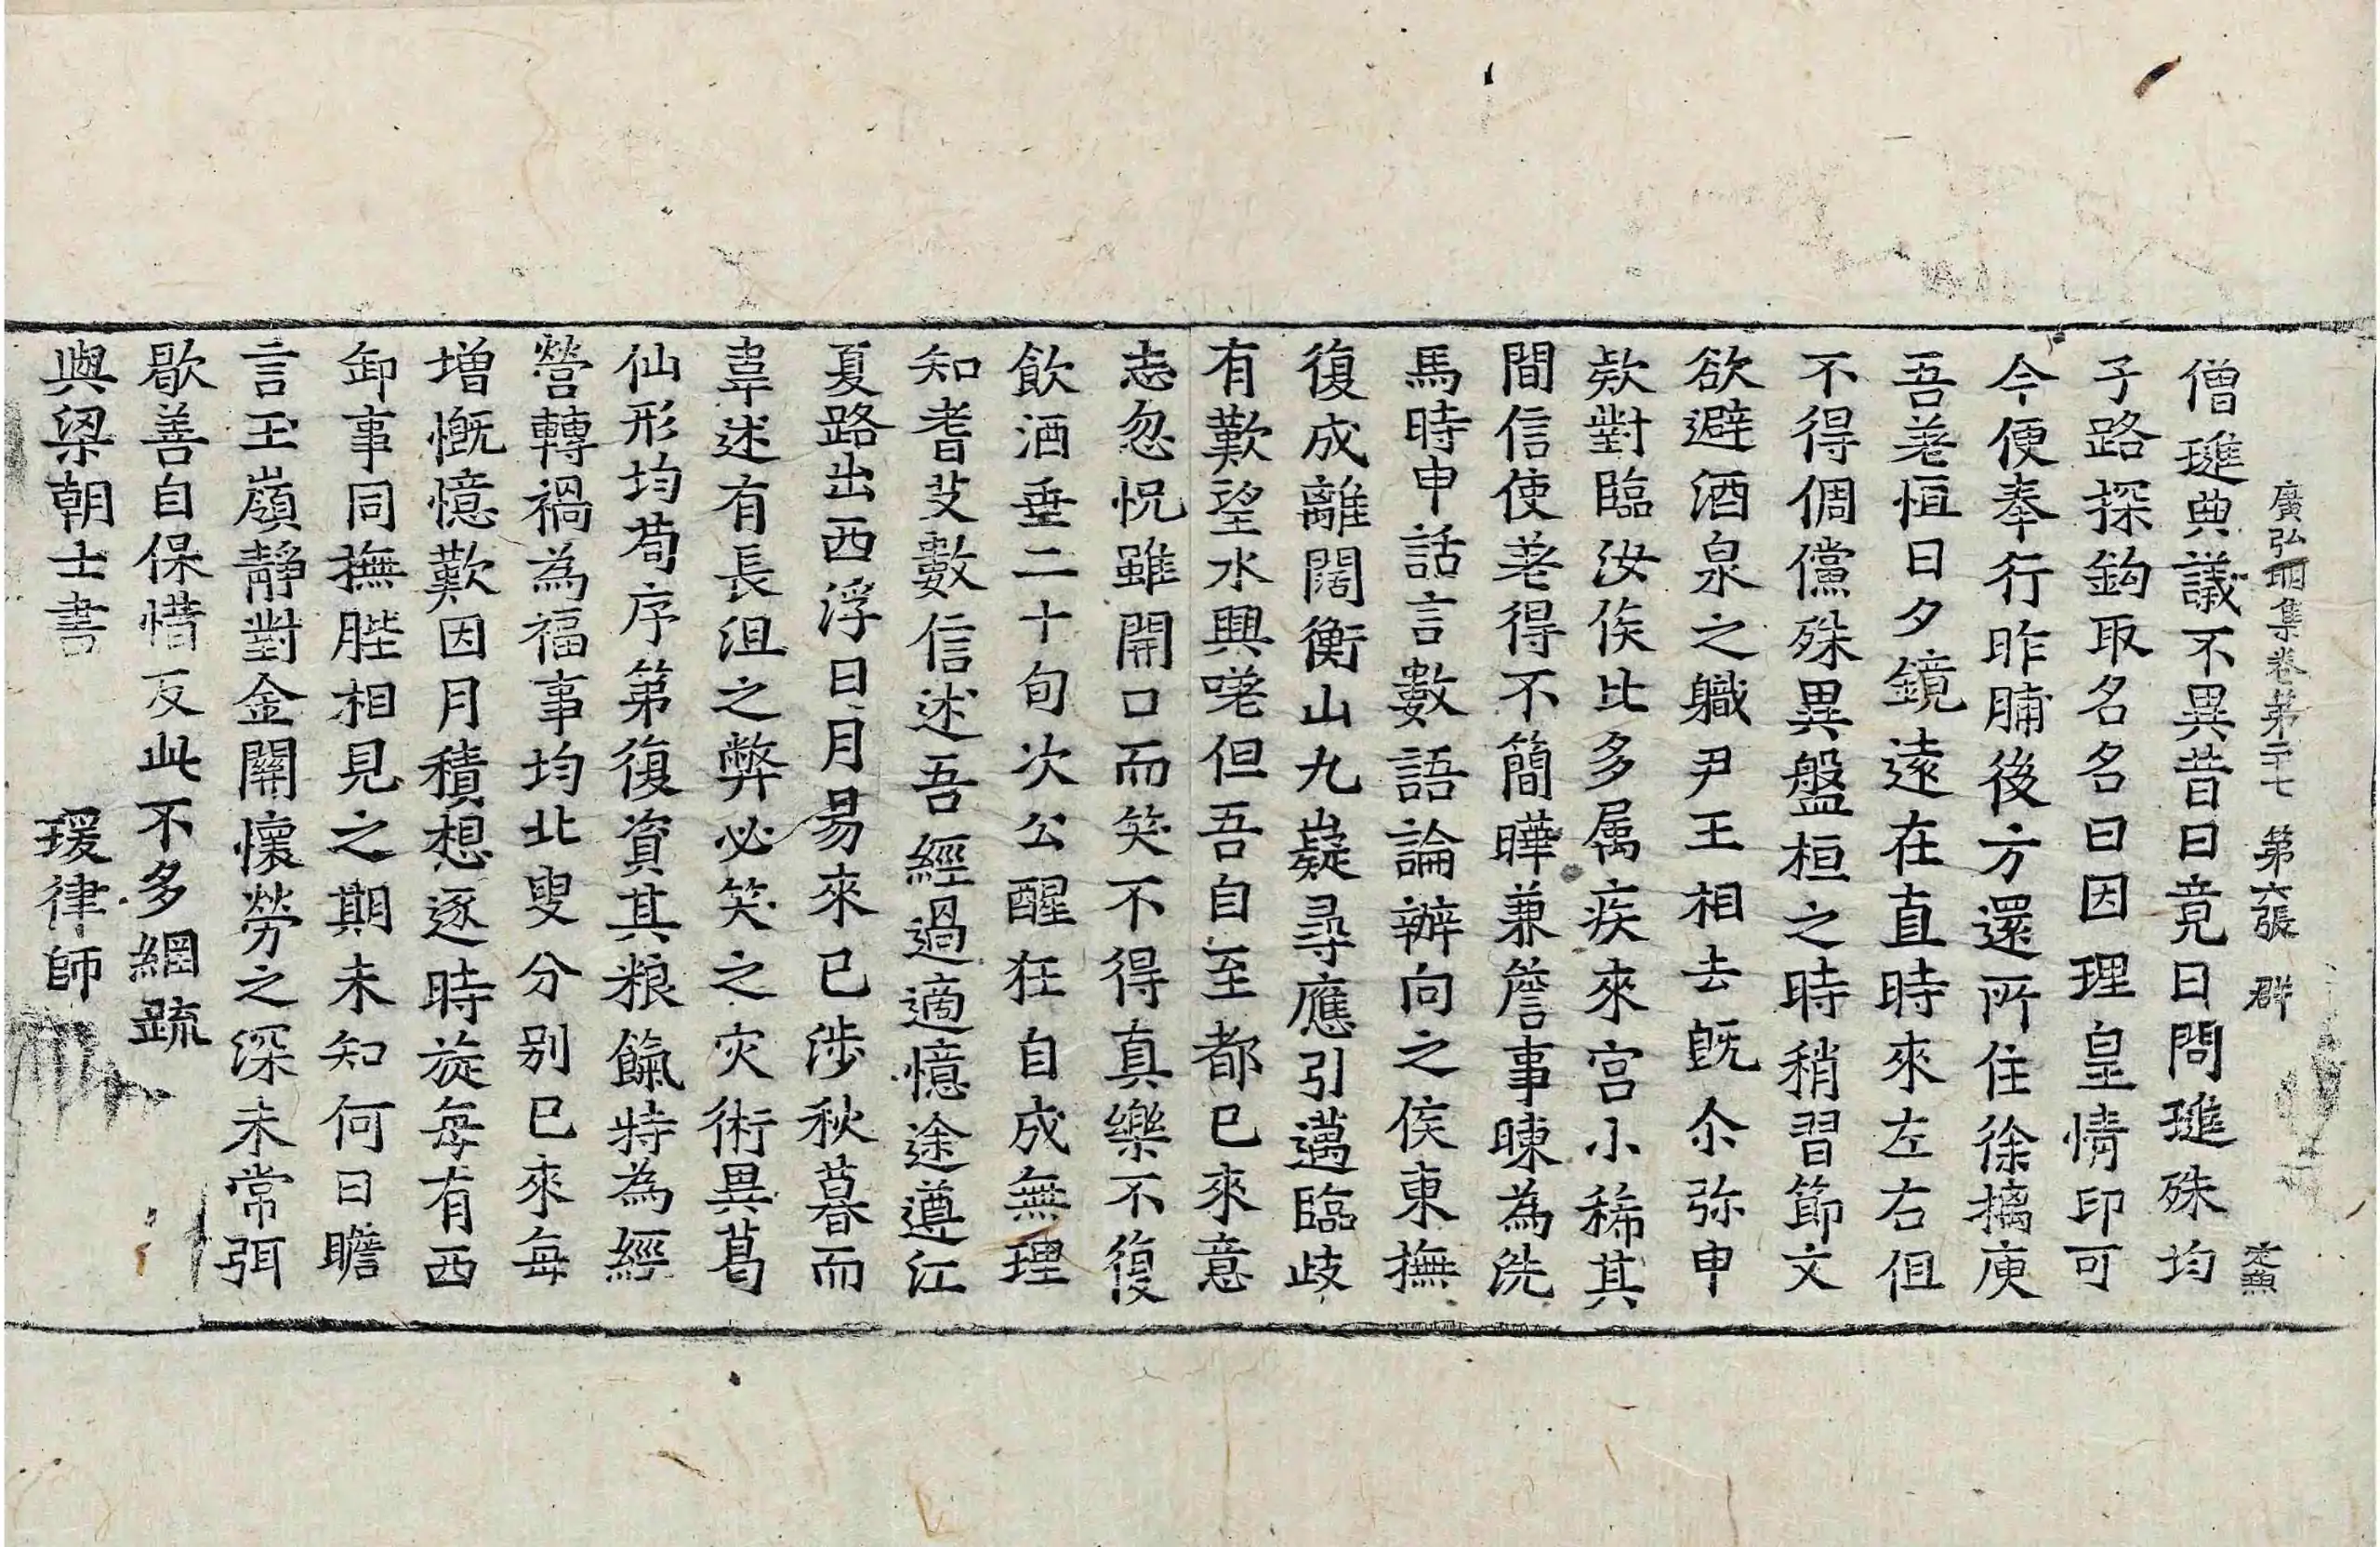 廣弘明集卷第二十七 第六張 群
僧璡典議不異昔日竟日問璡殊均
子路探鈎取名名曰因理皇情印可
今便奉行昨脯後方還所住徐摛庾
吾羌恒日夕鏡遠在直時來左右但
不得倜儻殊異盤桓之時稍習節文
欲避酒泉之職尹王相去旣尒弥申
欵對臨汝侯比多属疾來宮小稀其
間信使羌得不簡曄兼詹事暕為洗
馬時申話言數語論辦向之侯東撫
復成離闊衡山九嶷尋應引邁臨歧
有歎望水興嗟但吾自至都已來意
志忽怳雖開口而笑不得真樂不復
飲酒垂二十旬次公醒狂自成無理
知耆艾數信述吾經過適憶途遵江
夏路出西浮日月易來已涉秋暮而
韋述有長沮之弊必笑之灾術異葛
仙形均荀序第復資其粮餼特為經
營轉禍為福事均北叟分別已來每
增慨憶歎因月積想逐時旋每有西
卸事同撫髀相見之期未知何日瞻
言玉嶺靜對金關懷勞之深未常弭
歇善自保惜反此不多綱疏
與梁朝士書 瑗律師